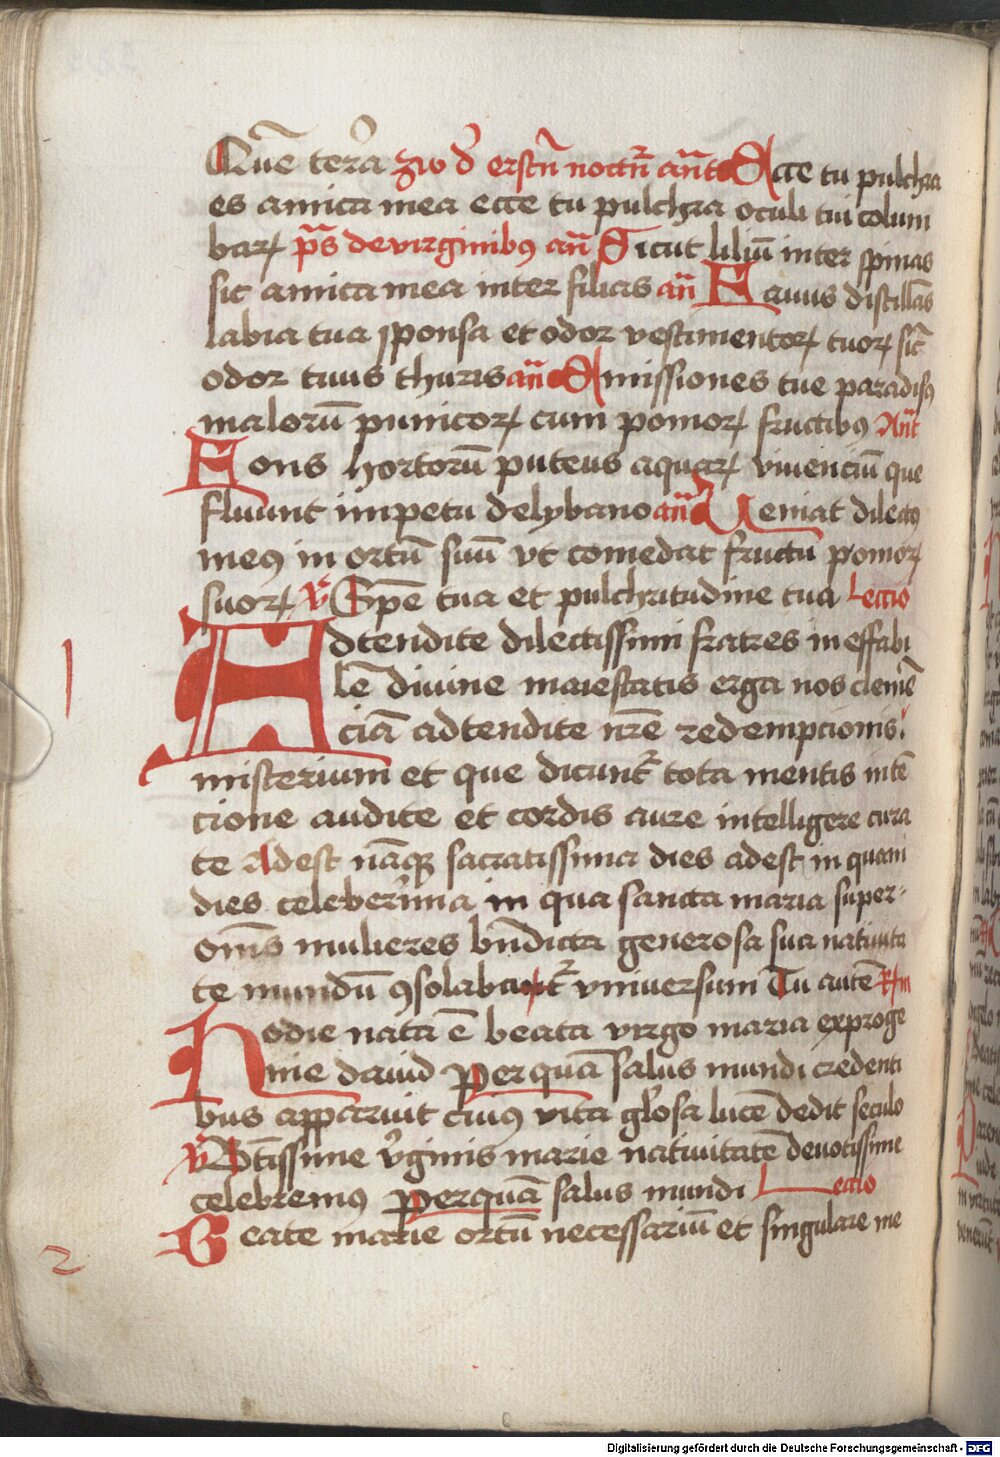 Quē terͣa zw d erstn̄ noctn̄ ant Ecce tu pulchra
es amica mea ecce tu pulchra oculi tui colum
barꝝ pˢs de virginibꝯ an̄ Sicut liliū inter spinas
sic amica mea inter filias an̄ Fauus distillās
labia tua sponsa et odor vestimentorꝝ tuorꝝ sic̄
odor tuus thuris an̄ Emissiones tue paradisꝯ
malorū punicorꝝ cum pomorꝝ fructibꝯ Ant
Fons hortorū puteus aquarꝝ viuenciū que
fluunt impetu de lybano an̄ Veniat dilectꝯ
meꝯ in ortū suū vt comedat fructū pomorꝝ
suorꝝ v̄ Spē tua et pulchritudine tua Leccio
1
Adtendite dilectissimi fratres ineffabi
lē diuine maiestatis erga nos clemē
ciā adtendite nr̄e redempcionis
misterium et que dicunt᷑ tota mentis intē
cione audite et cordis aure intelligere cura
te Adest nāqꝫ sacratissima dies adest inquam
dies celeberͥma in qua sancta maria super
om̄s mulieres bn̄dicta generosa sua natiuita
te mundū ꝯsolabat᷑ vniuersum Tu autē Rm
Hodie nata ē beata virgo maria ex proge
nie dauid Per quā salus mundi credenti
bus apparuit cuiꝯ vita glͦosa lucē dedit seculo
v̄ Btīssime vͥginis marie natiuitatē deuotissime
celebremꝯ Per quā salus mundi Leccio
2
Beate marie ortū necessariū et singulare me
Digitalisierung gefördert durch die Deutsche Forschungsgemeinschaft - DFG